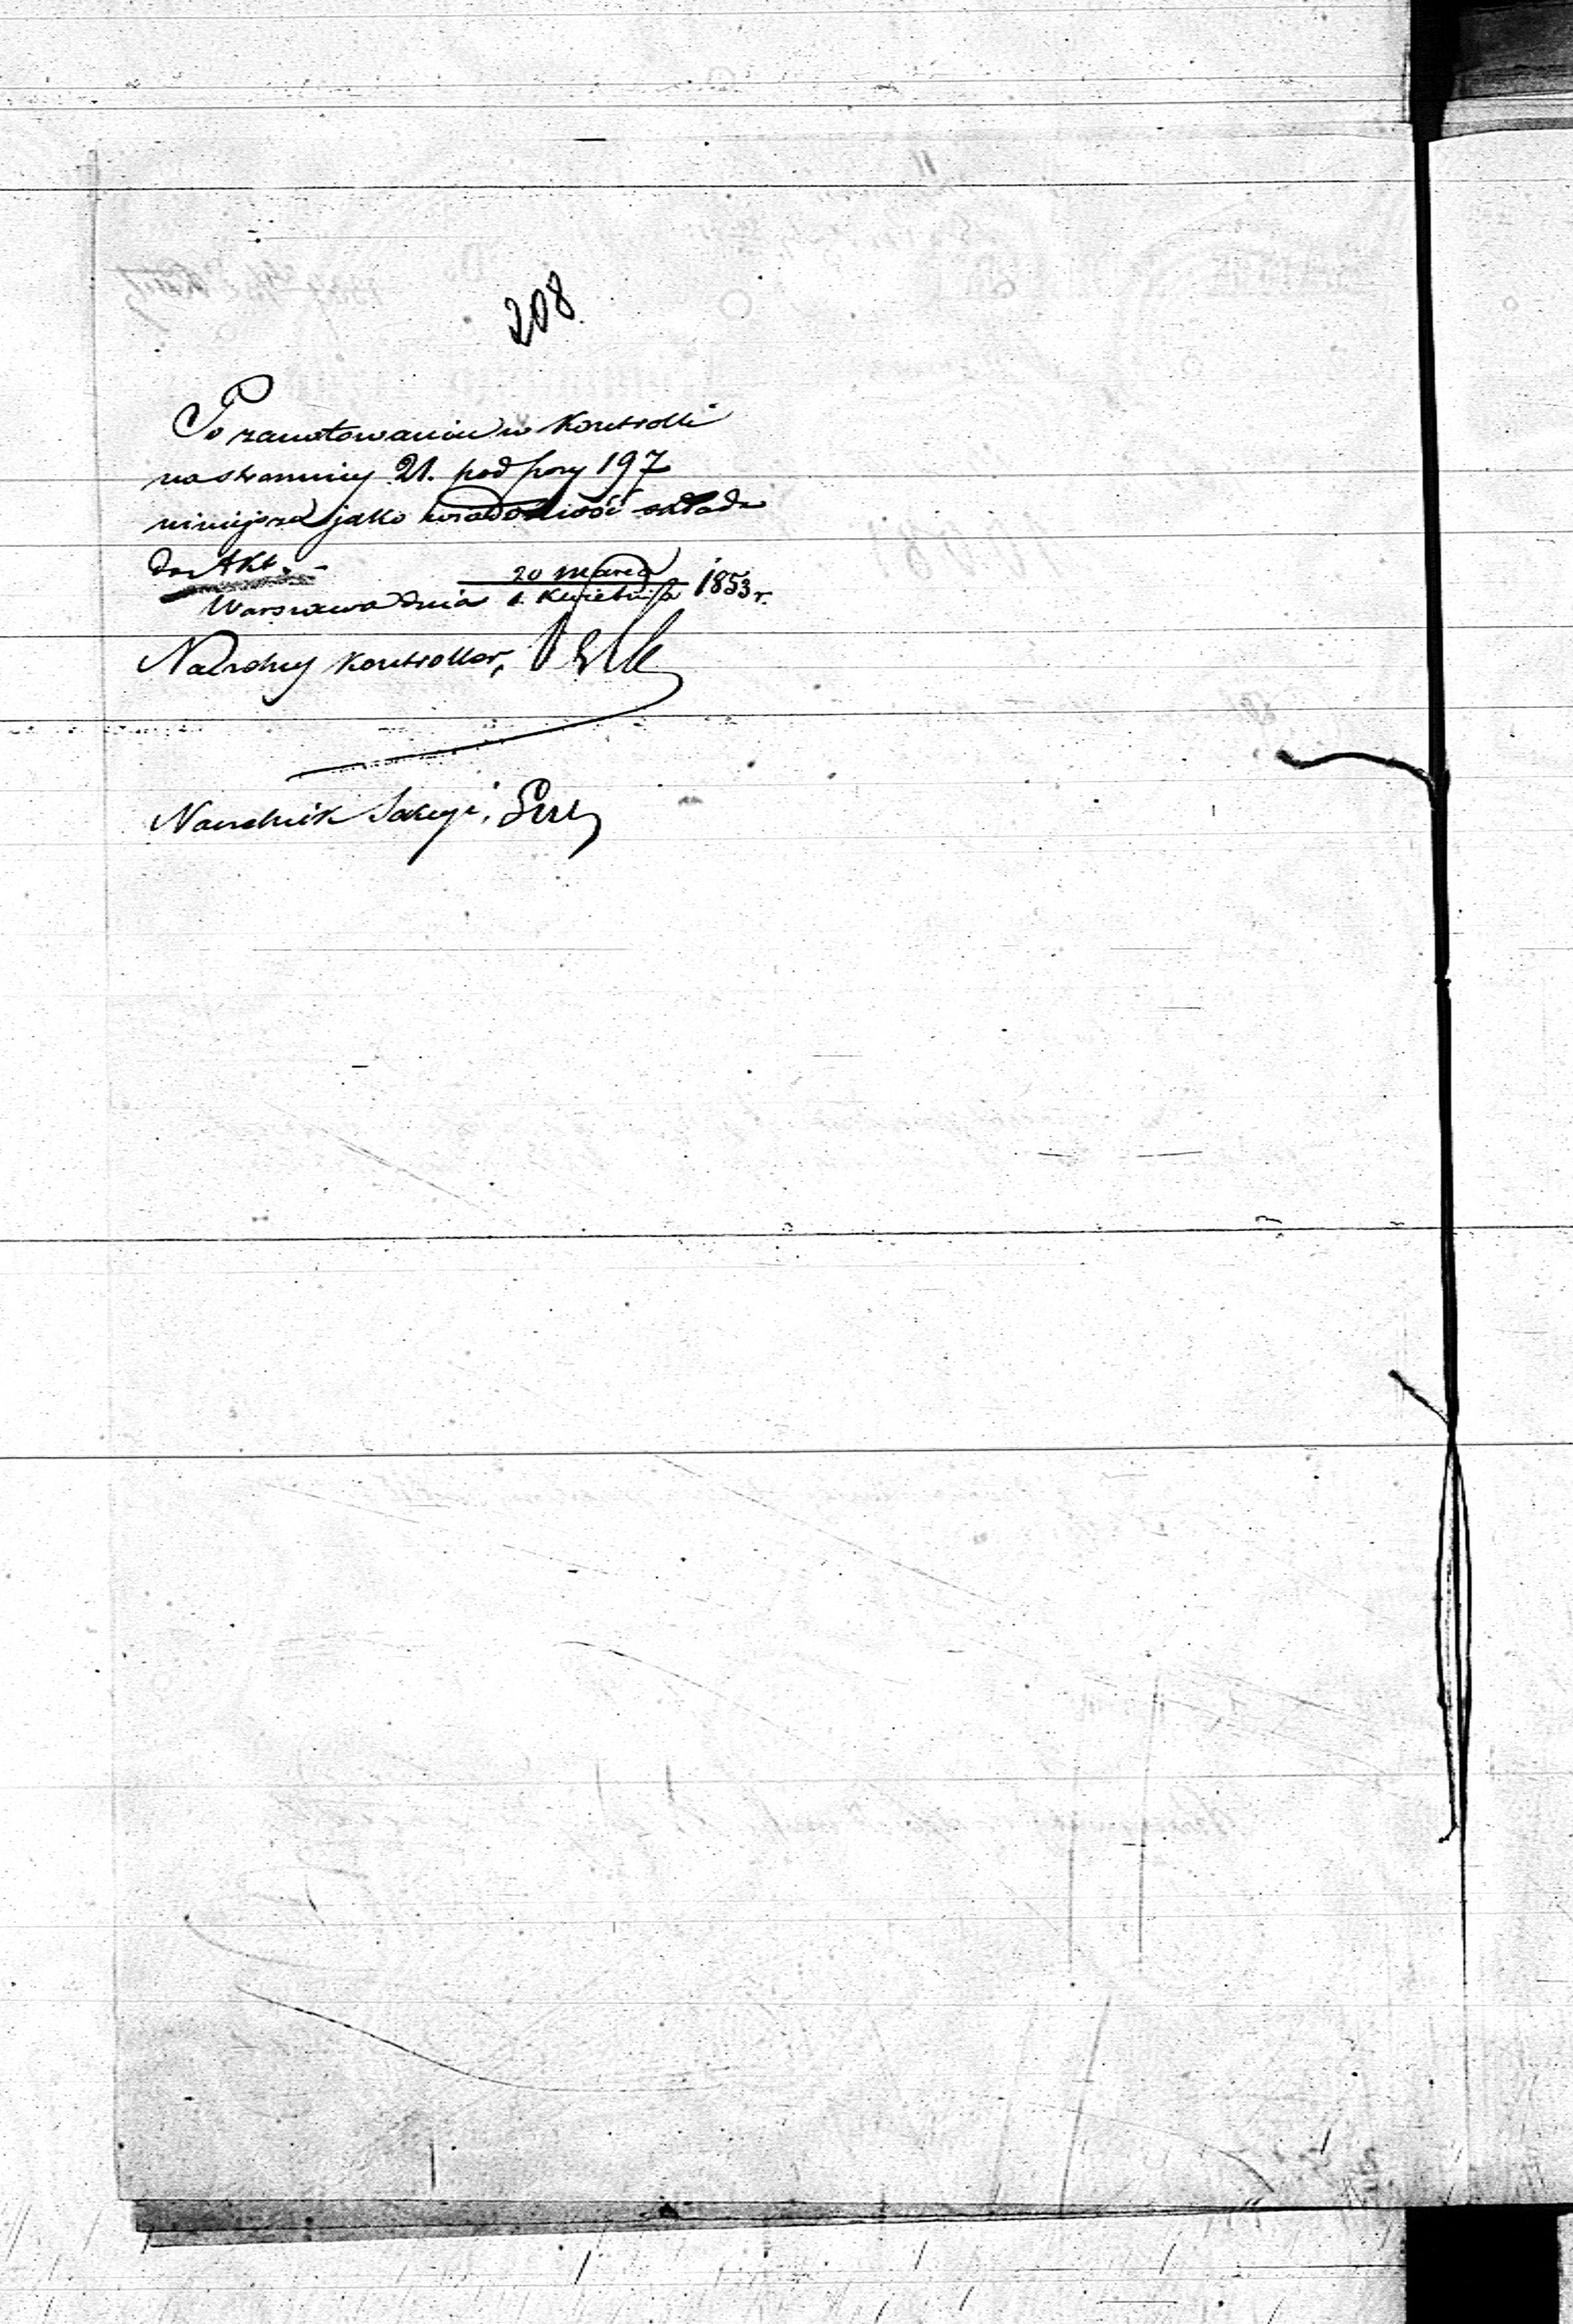 208.
Po zanotowaniu w Kontrolli
na stronnicy 21. pod poz 197
niniejsza jako wiadomość składa
do Akt. -
Warszawa dnia 20 marca / 1 Kwietnia 1853 r.
Naczelny Kontroller,
Naczelnik Sekcyi,